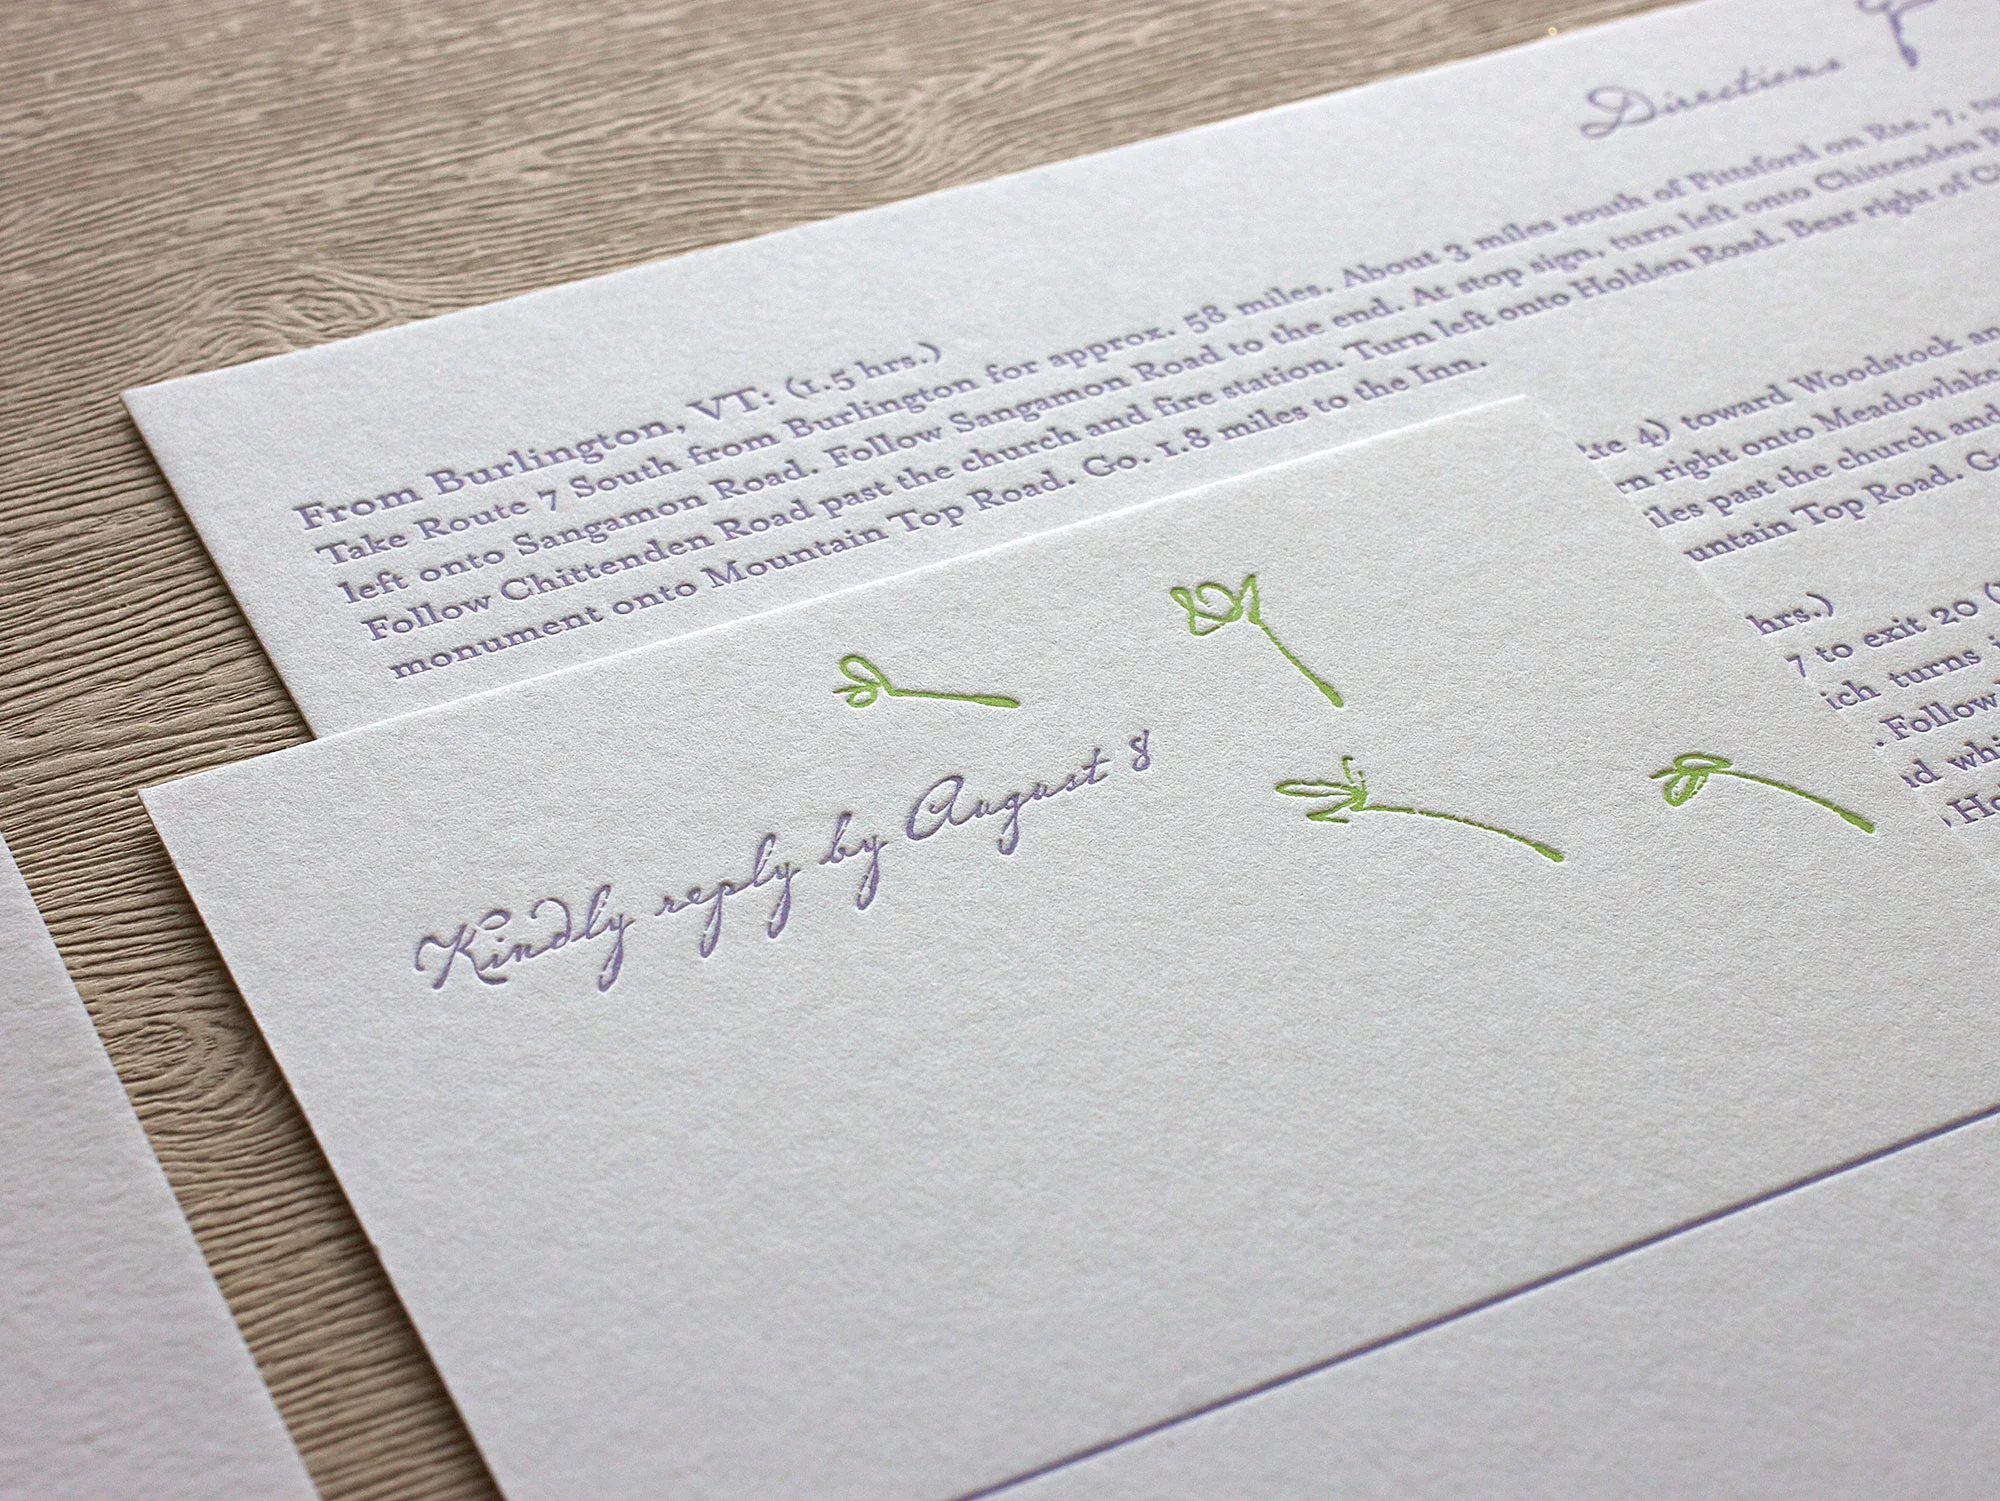 Directions
From Burlington, VT: (1.5 hrs.)
Take Route 7 South from Burlington for approx. 58 miles. About 3 miles south of Pittsford on Rte. 7,
left onto Sangamon Road. Follow Sangamon Road to the end. At stop sign, turn left onto Chittenden
Follow Chittenden Road past the church and fire station. Turn left onto Holden Road. Bear right of
monument onto Mountain Top Road. Go. 1.8 miles to the Inn.
4) toward Woodstock
right onto Meadowlake
past the church and
Top Road.
hrs.)
7 to exit 20
turns
. Follow
Kindly reply by August 8